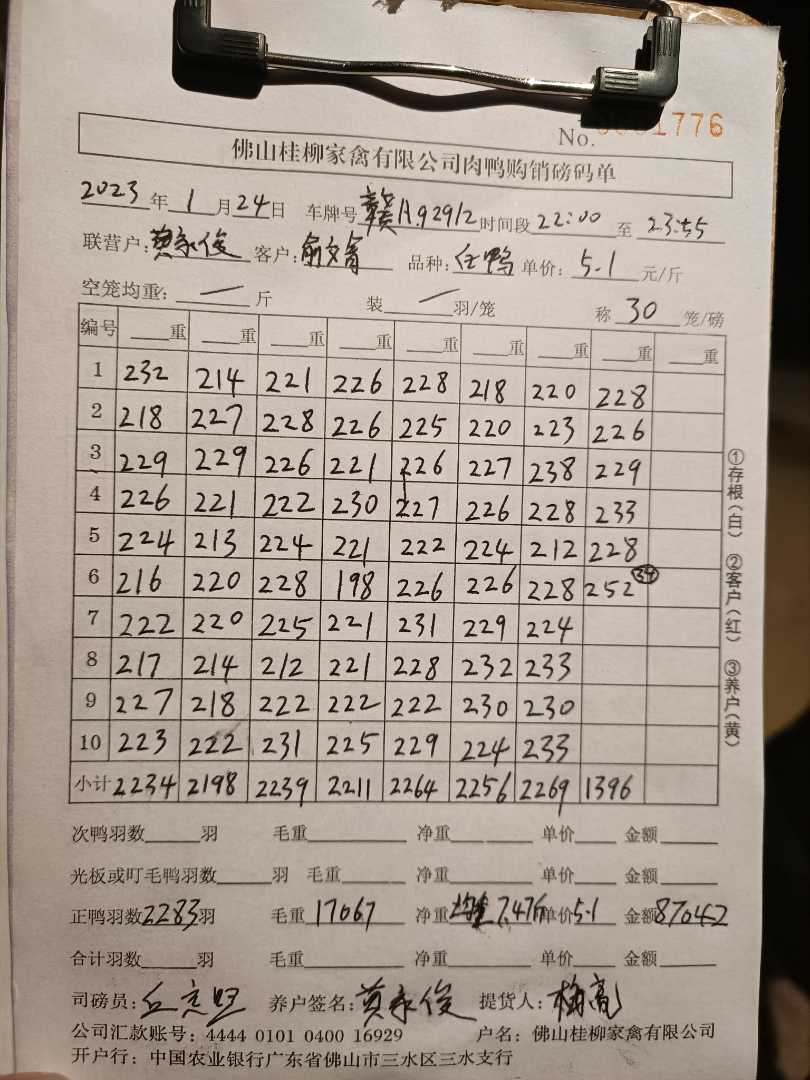 No. 1776
佛山桂柳家禽有限公司肉鸭购销磅码单
2023年1月24日 车牌号赣A.92912时间段22:00至23:55
联营户:黄永俊 客户:俞文 品种: 鸭 单价: 5.1 元/斤
空笼均重: 一 斤 装 一 羽/笼 称 30 笼/磅
编号 重 重 重 重 重 重 重 重 重
1 232 214 221 226 228 218 220 228
2 218 227 228 226 225 220 223 226
3 229 229 226 221 226 227 238 229
4 226 221 222 230 227 226 228 233
5 224 213 224 221 222 224 212 228
6 216 220 228 198 226 226 228 252 34
7 222 220 225 221 231 229 224
8 217 214 212 221 228 232 233
9 227 218 222 222 222 230 230
10 223 222 231 225 229 224 233
小计 2234 2198 2239 2211 2264 2256 2269 1396
次鸭羽数 羽 毛重 净重 单价 金额
光板或叮毛鸭羽数 羽 毛重 净重 单价 金额
正鸭羽数2283羽 毛重 17067 净重 均重7.47斤 单价5.1 金额87042
合计羽数 羽 毛重 净重 单价 金额
司磅员: 养户签名: 黄永俊 提货人: 梅亮
公司汇款账号: 4444 0101 0400 16929 户名: 佛山桂柳家禽有限公司
开户行: 中国农业银行广东省佛山市三水区三水支行
①存根(白) ②客户(红) ③养户(黄)